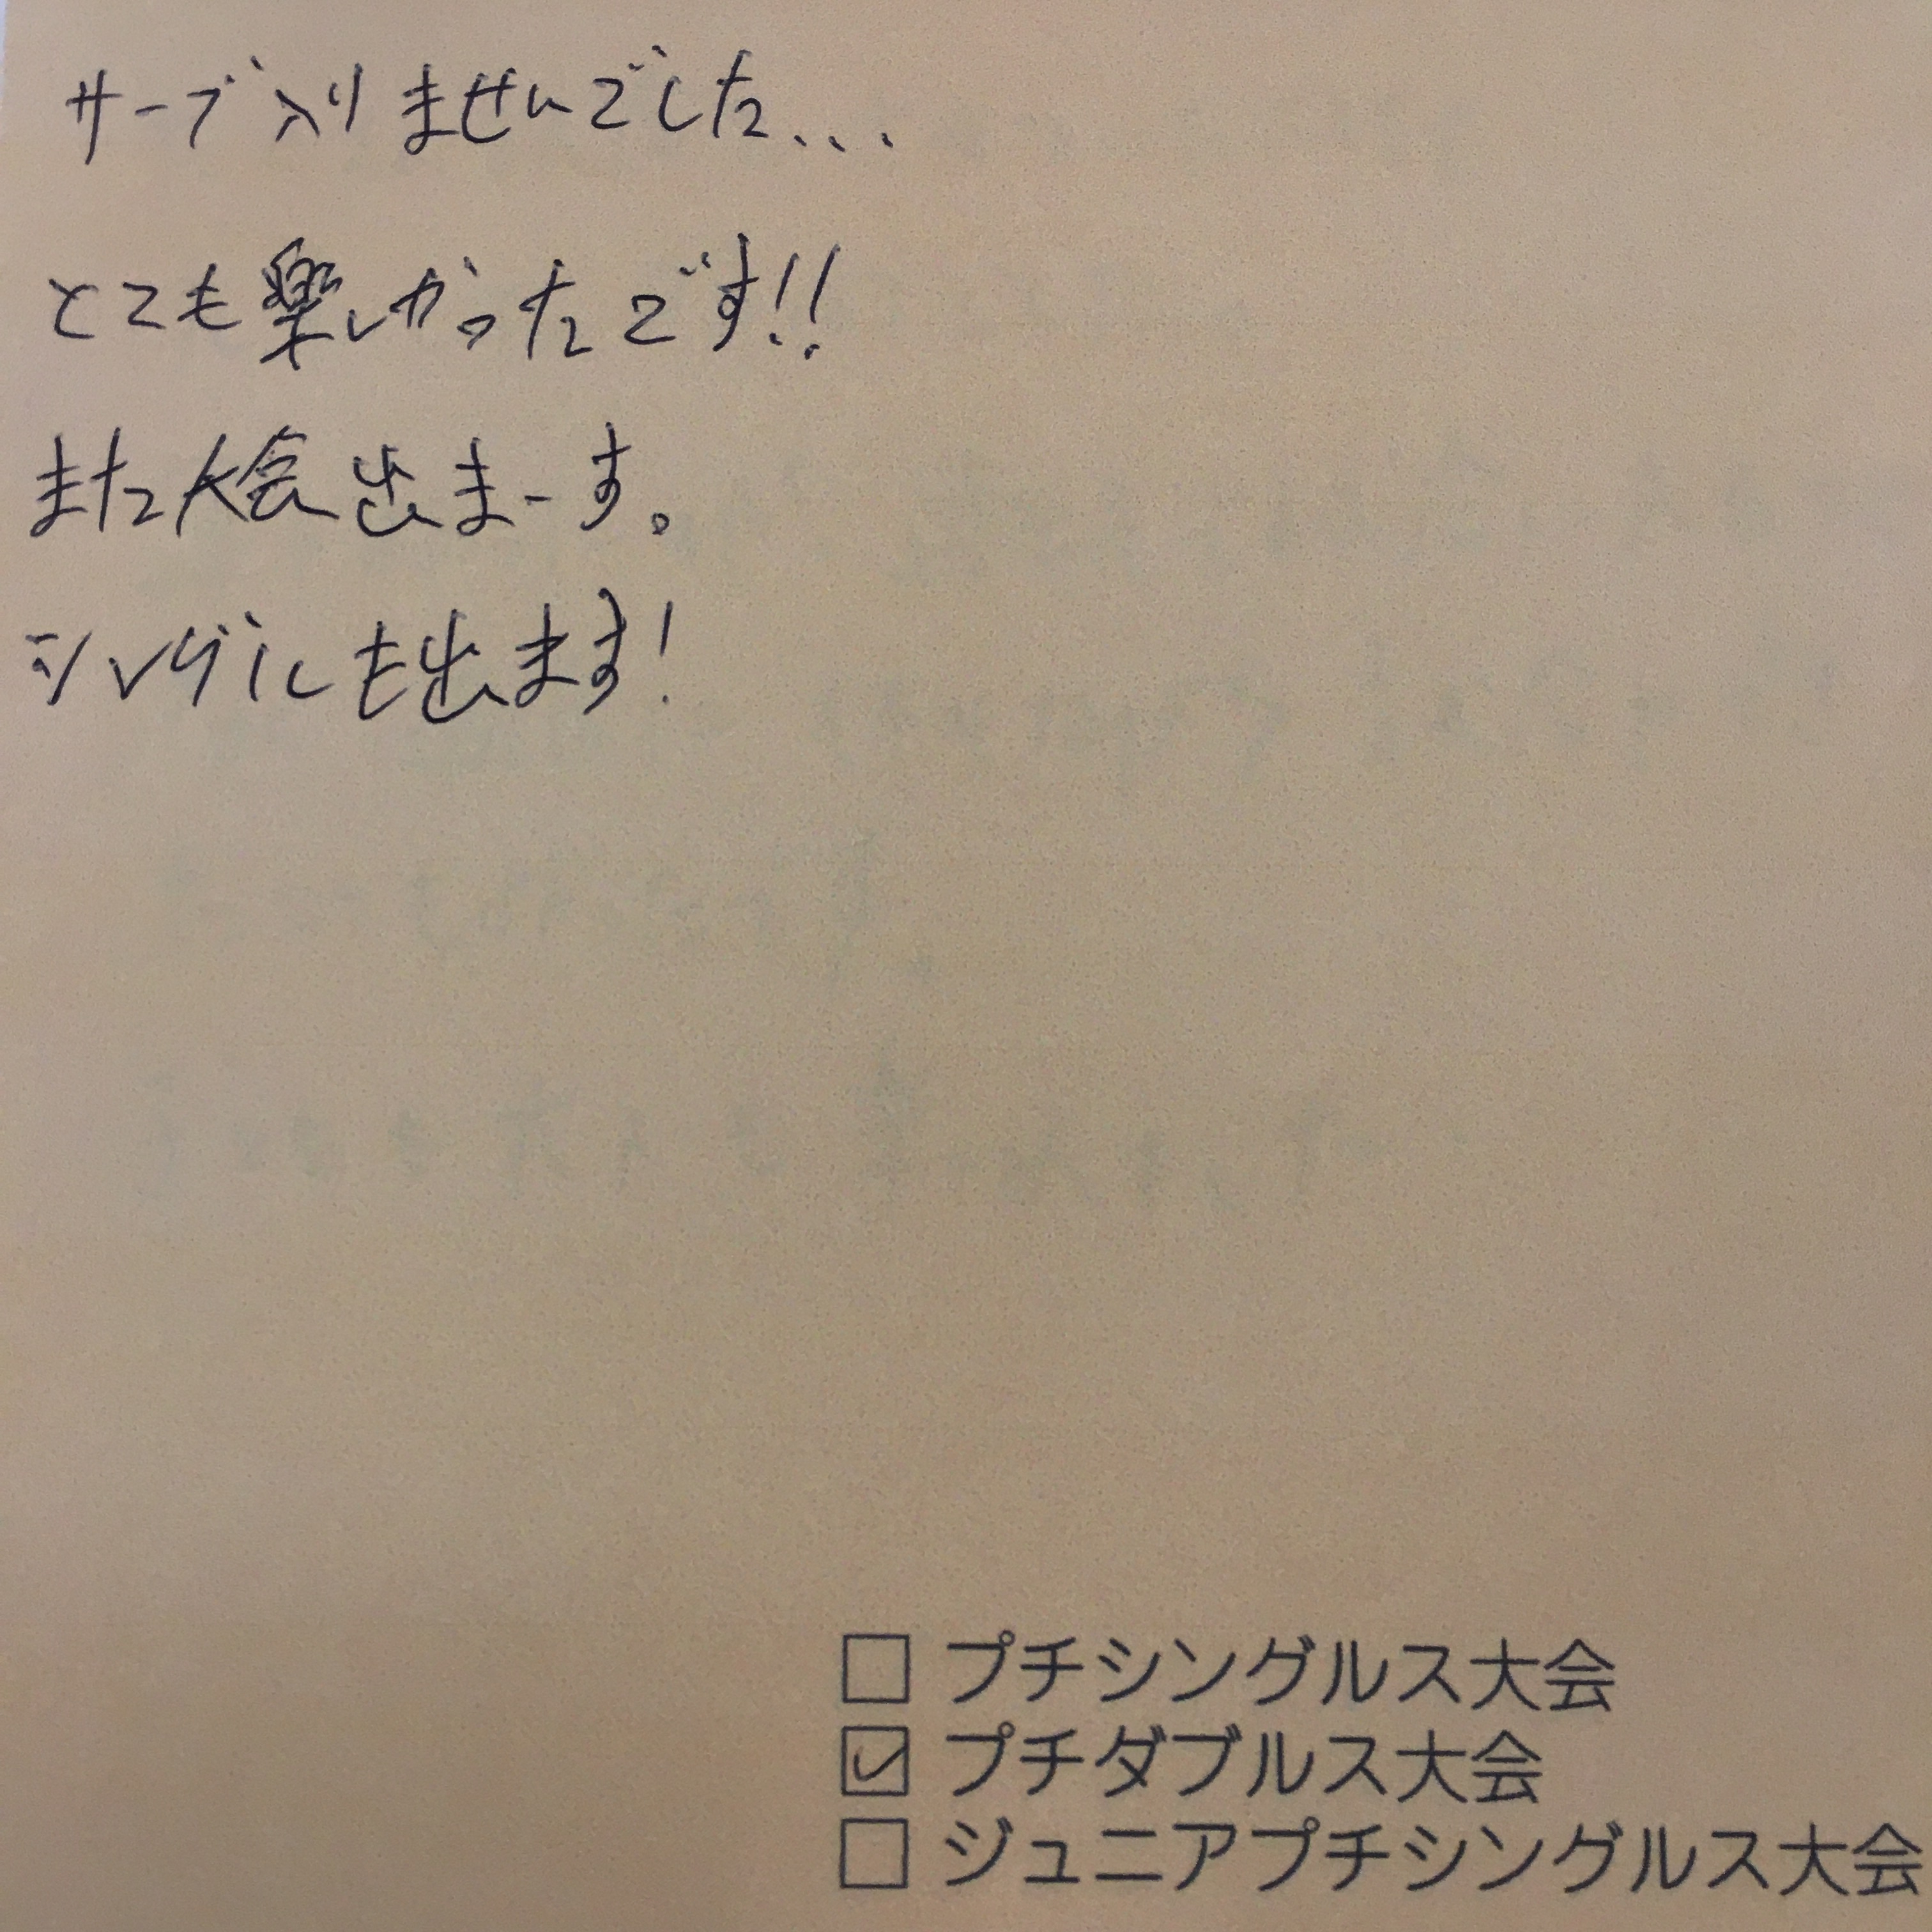 サーブ入りませんでした...
とても楽しかったです!!
また大会出まーす。
シングルも出ます!
□ プチシングルス大会
☑ プチダブルス大会
□ ジュニアプチシングルス大会